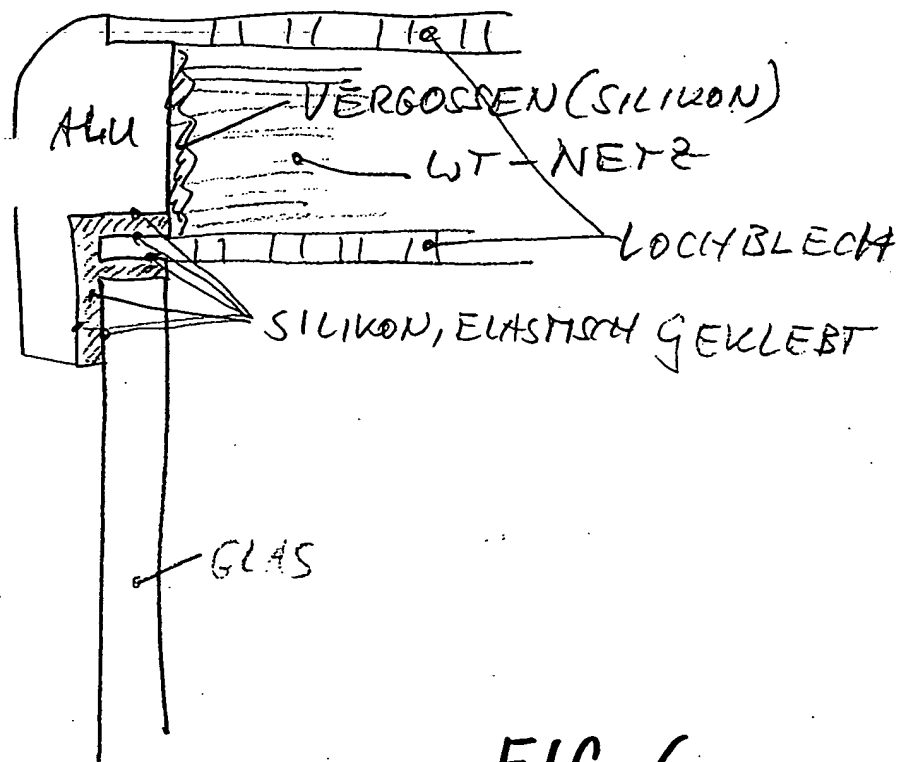 ALU
VERGOSSEN (SILIKON)
WT-NETZ
LOCHBLECH
SILIKON, ELASTISCH GEKLEBT
GLAS
FIG.